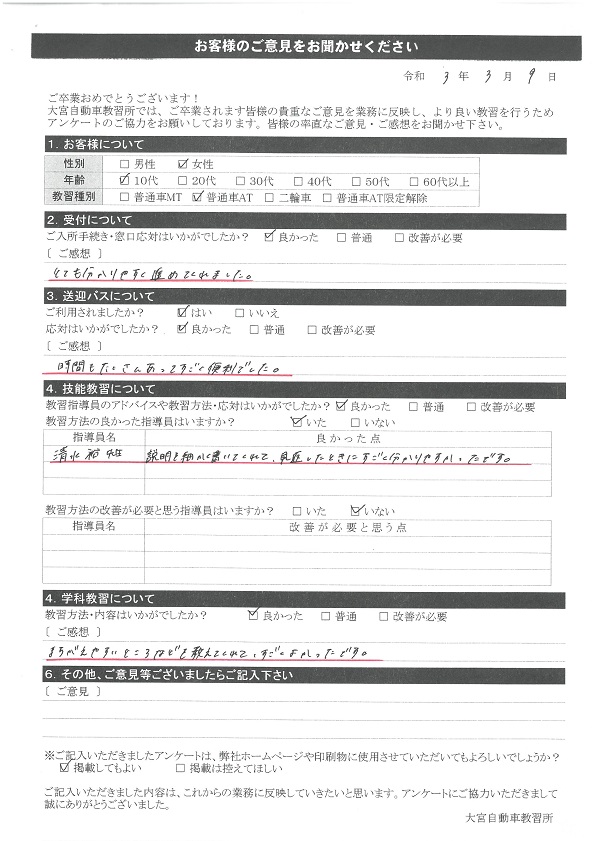 お客様のご意見をお聞かせください
令和 3 年 3 月 9 日
ご卒業おめでとうございます！
大宮自動車教習所では、ご卒業されます皆様の貴重なご意見を業務に反映し、より良い教習を行うため
アンケートのご協力をお願いしております。皆様の率直なご意見・ご感想をお聞かせ下さい。
1. お客様について
性別 □ 男性 ☑ 女性
年齢 ☑ 10代 □ 20代 □ 30代 □ 40代 □ 50代 □ 60代以上
教習種別 □ 普通車MT ☑ 普通車AT □ 二輪車 □ 普通車AT限定解除
2. 受付について
ご入所手続き・窓口応対はいかがでしたか？ ☑ 良かった □ 普通 □ 改善が必要
〔 ご感想 〕
とても分かりやすく進めてくれました。
3. 送迎バスについて
ご利用されましたか？ ☑ はい □ いいえ
応対はいかがでしたか？ ☑ 良かった □ 普通 □ 改善が必要
〔 ご感想 〕
時間もたくさんあってすごく便利でした。
4. 技能教習について
教習指導員のアドバイスや教習方法・応対はいかがでしたか？ ☑ 良かった □ 普通 □ 改善が必要
教習方法の良かった指導員はいますか？ ☑ いた □ いない
指導員名 良かった点
清水 説明を細かく書いてくれて、見直したときにすごく分かりやすかったです。
教習方法の改善が必要と思う指導員はいますか？ □ いた ☑ いない
指導員名 改善が必要と思う点
4. 学科教習について
教習方法・内容はいかがでしたか？ ☑ 良かった □ 普通 □ 改善が必要
〔 ご感想 〕
まちがえやすいところなども教えてくれて、すごくよかったです。
6. その他、ご意見等ございましたらご記入下さい
〔 ご意見 〕
※ご記入いただきましたアンケートは、弊社ホームページや印刷物に使用させていただいてもよろしいでしょうか？
☑ 掲載してもよい □ 掲載は控えてほしい
ご記入いただきました内容は、これからの業務に反映していきたいと思います。アンケートにご協力いただきまして
誠にありがとうございました。
大宮自動車教習所